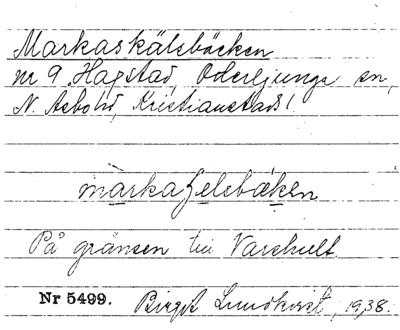 Markaskälsbäcken
nr 9 Hagstad, Oderljunga sn,
N. Åsbo hd, Kristianstads l.
markaʃelsbækən
På gränsen till Varshult
Nr 5499. Birgit Lundkvist, 1938.